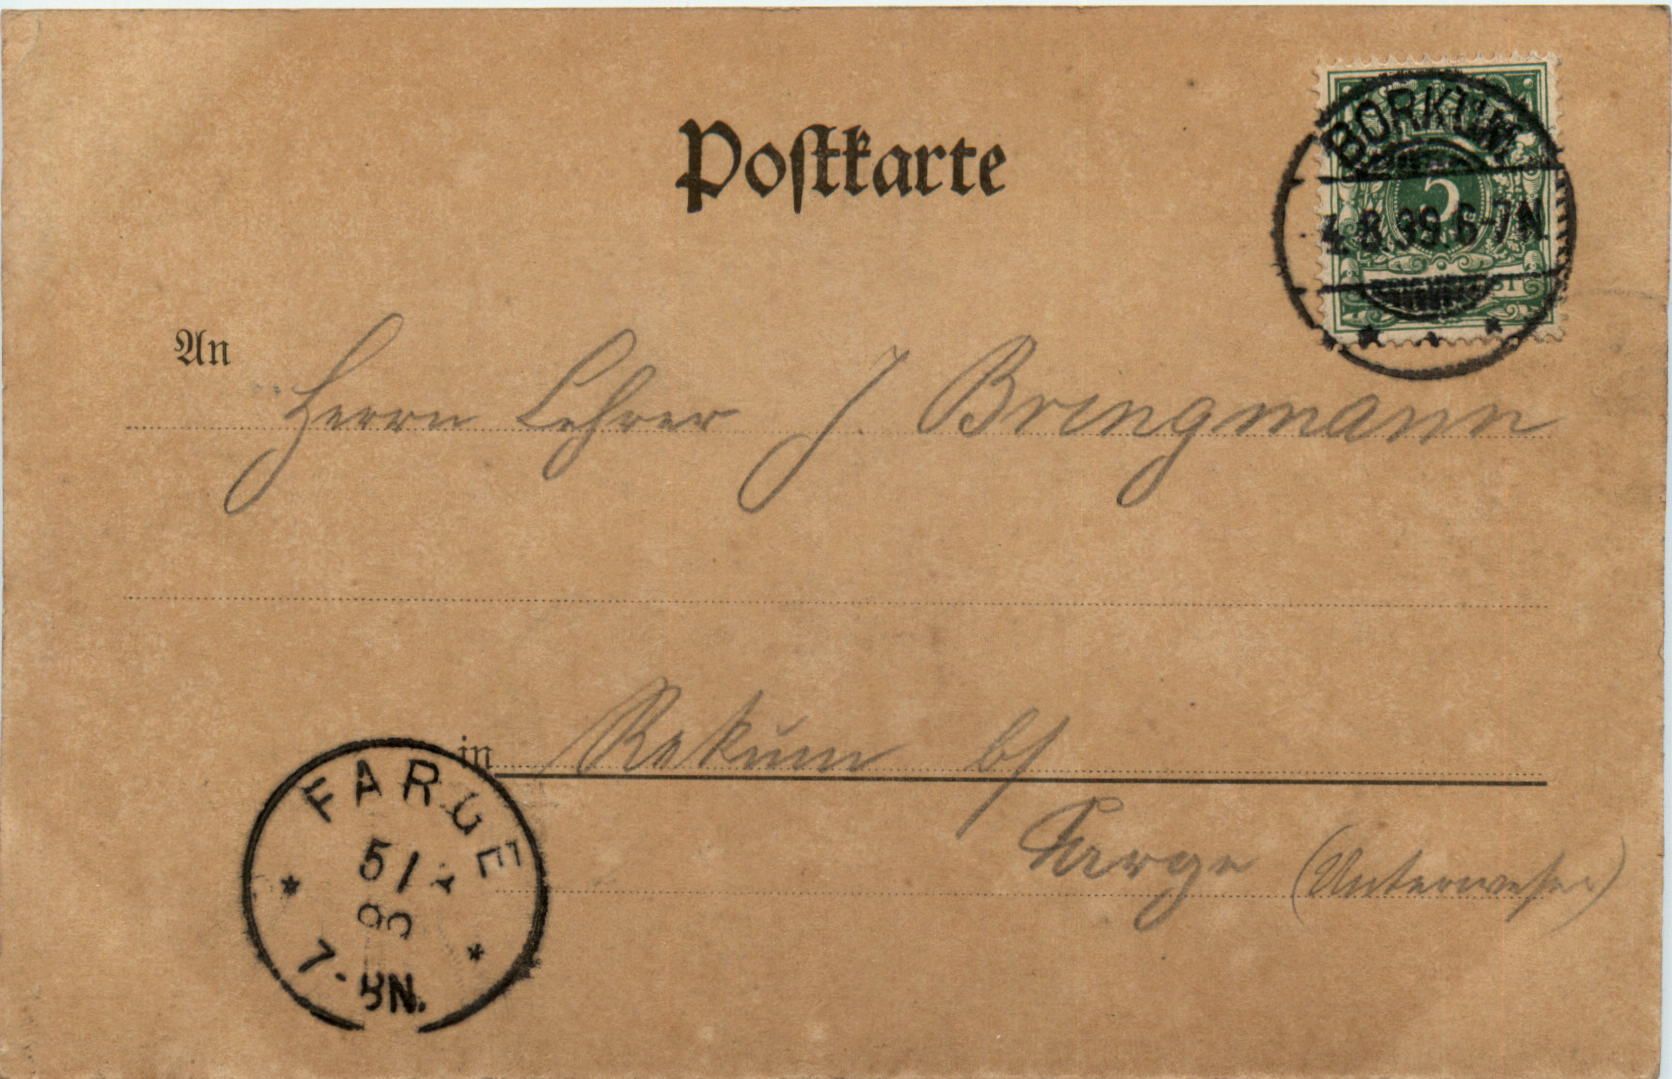 Postkarte
BORKUM
4.8.99.6-7N
5
An
Herrn Lehrer J. Bringmann
in Rekum b/
Farge (Unterweser)
FARGE
5/8
99
7-8N.